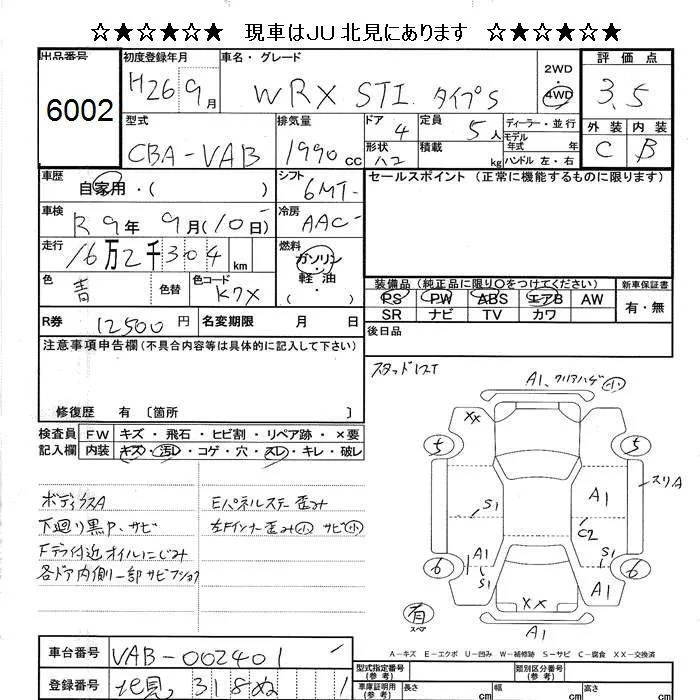 ☆★☆★☆★☆ 現車はJU北見にあります ☆★☆★☆★☆
出品番号 6002
初度登録年月 H26 9月
車名・グレード WRX STI タイプS
2WD
4WD
評価点 3.5
外装 内装
C B
型式 CBA-VAB
排気量 1990cc
ドア 4
形状 ハコ
定員 5人
積載 kg
ディーラー・並行
モデル年式 年式
ハンドル 左・右
車歴 自家用・( )
シフト 6MT
車検 R9年9月(10日)
冷房 AAC
走行 16万2千304km
燃料 ガソリン・軽油 ( )
色 青 色替 色コード K7X
R券 12500円 名変期限 月 日
セールスポイント(正常に機能するものに限ります)
装備品(純正品に限り○をつけてください)
PS PW ABS エアB AW
SR ナビ TV カワ
新車保証書
有・無
後日品
注意事項申告欄(不具合内容等は具体的に記入して下さい)
修復歴 有 〔箇所 〕
スタッドレスT
検査員記入欄 FW キズ・飛石・ヒビ割・リペア跡・×要
内装 キズ・汚レ・コゲ・穴・スレ・キレ・破レ
ボディクスA
下廻り黒P、サビ
Fデフ付近オイルにじみ
各ドア内側一部サビ
Eパネルステー歪み
左Fインナー歪み小 サビ小
A1、クリアハゲ小
XX
5 5
スリA
S1 A1
C2
A1 S1
6 6
S1 A1
XX
有
スペア
A1
A-キズ E-エクボ U-凹み W-補修跡 S-サビ C-腐食 XX-交換済
車台番号 VAB-002401
登録番号 北見 318 ぬ 1
型式指定番号(参考) 類別区分番号(参考)
車庫証明用(参考) 長さ cm 幅 cm 高さ cm